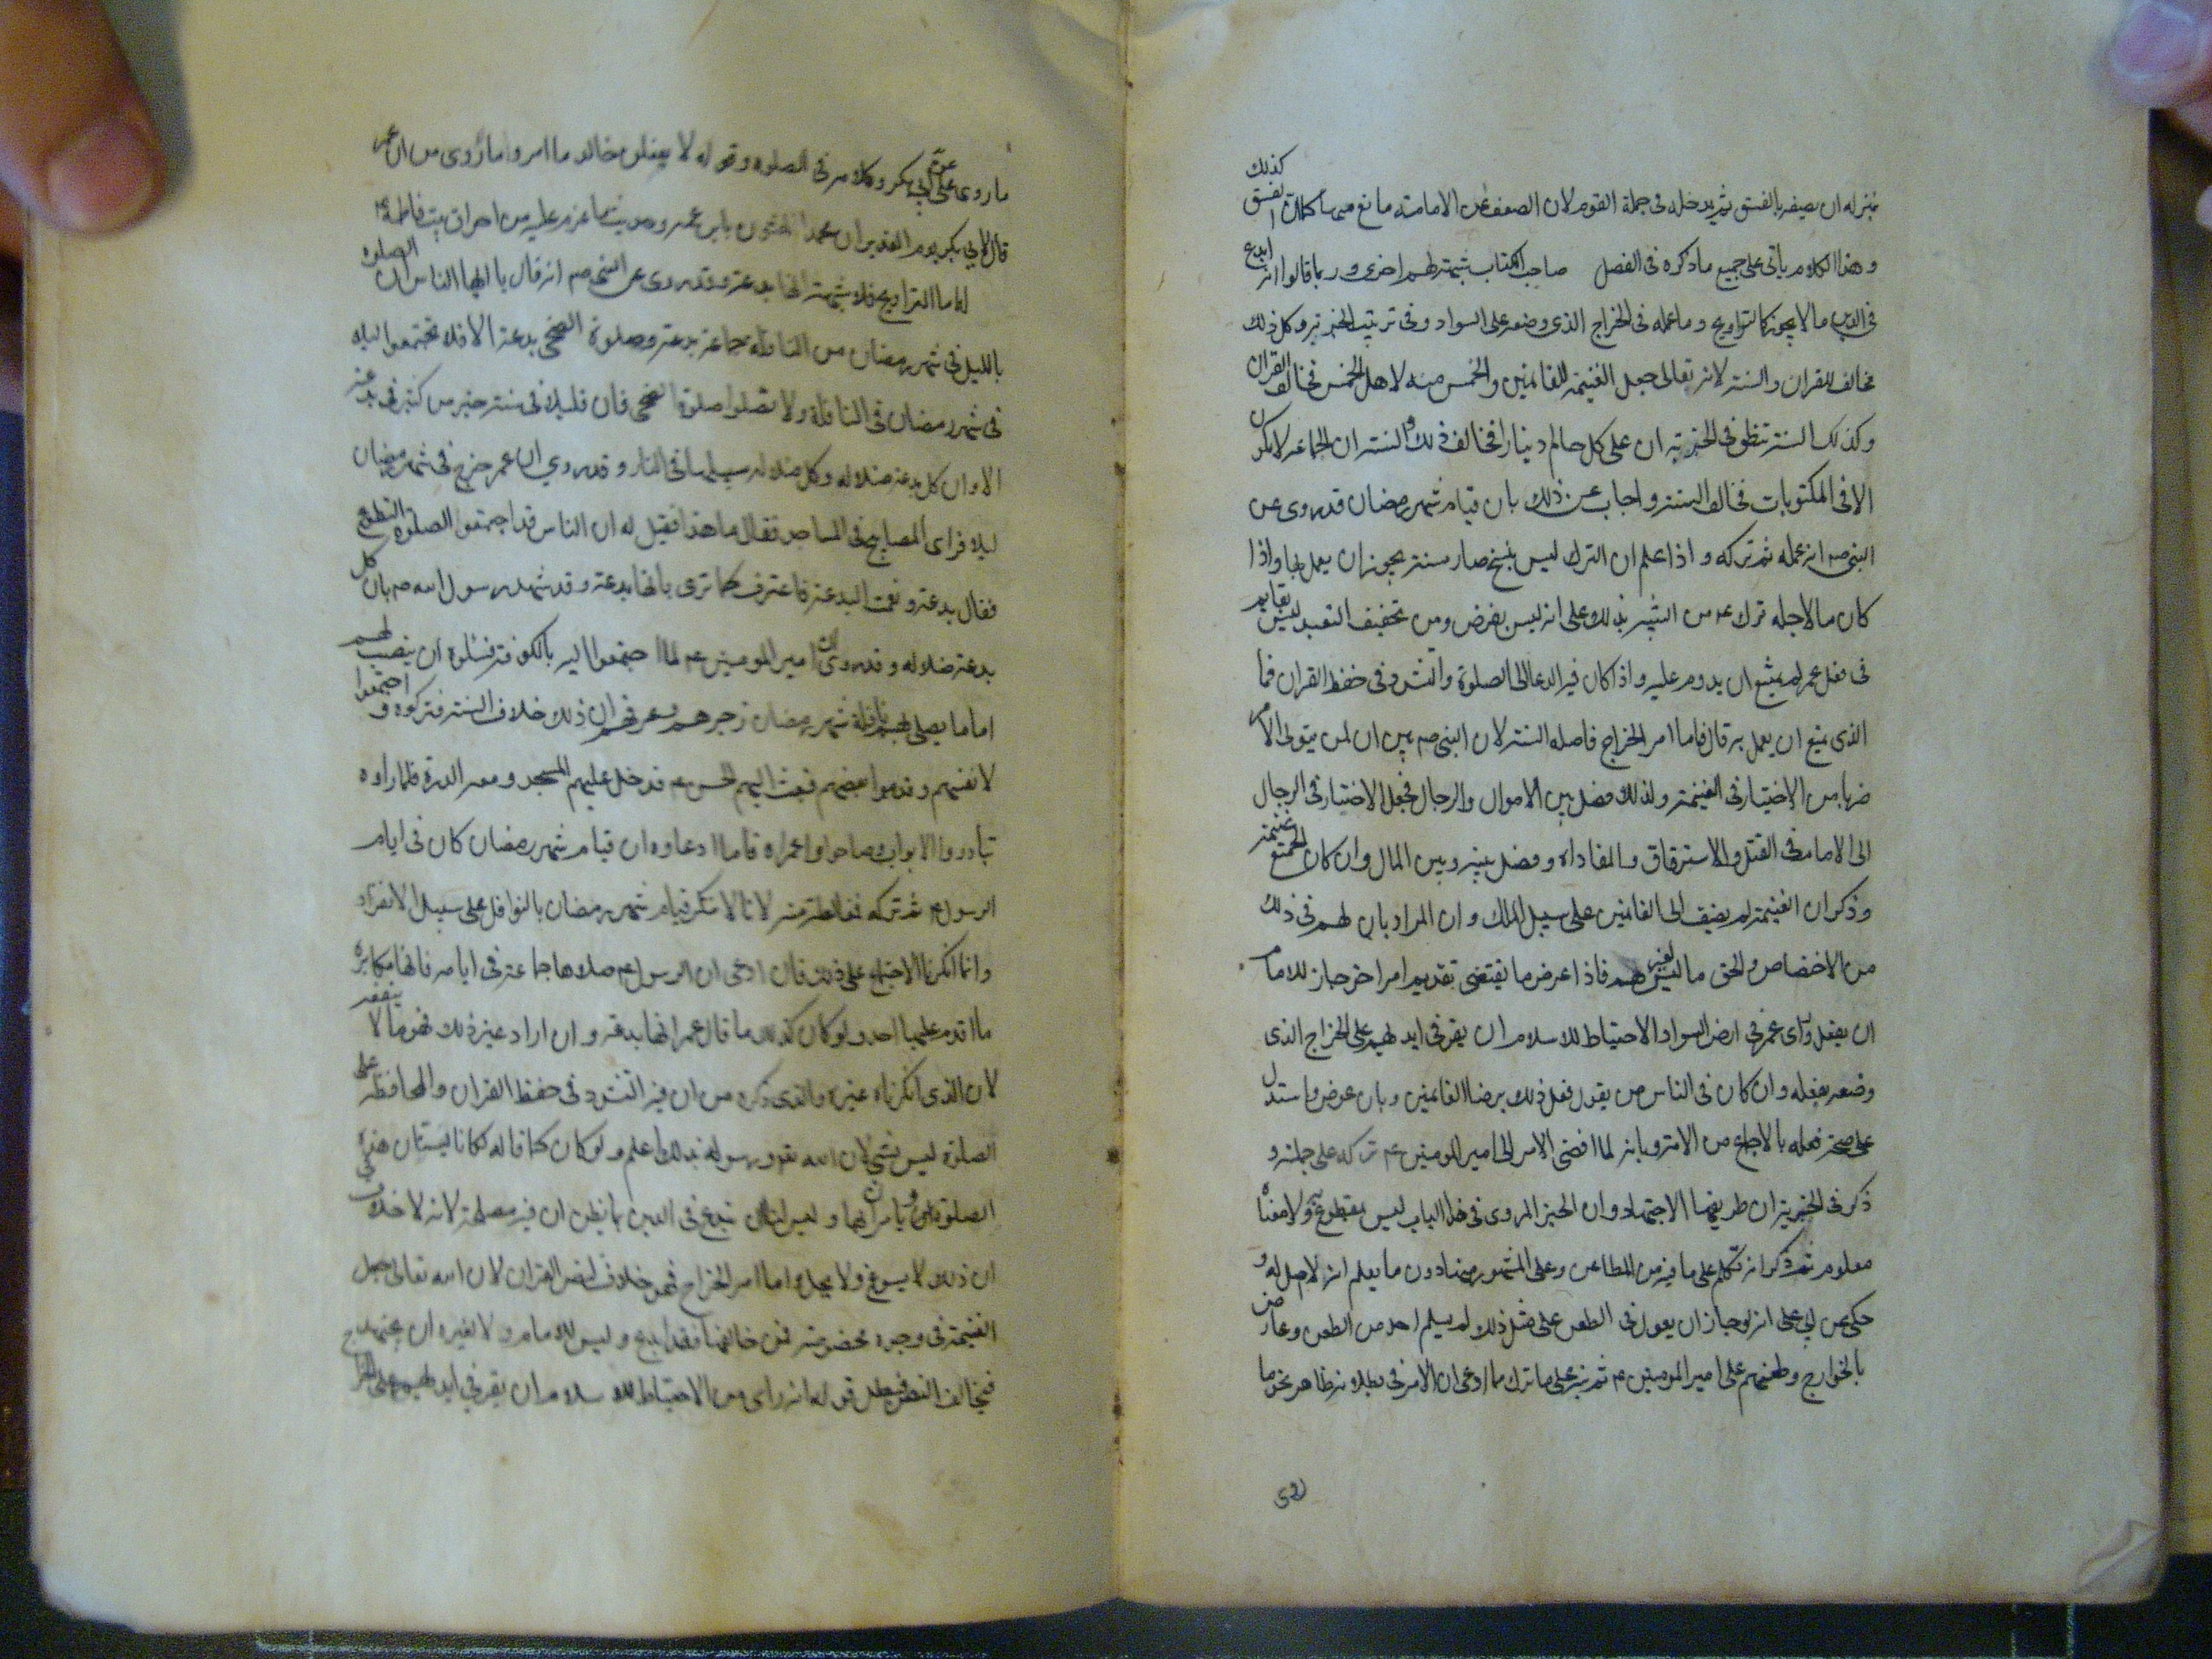 بمنزله ان يصفه بالفسق ثم يدخله فى جملة القوم لان الضعف عن الامامة مانع منها كما ان الفسق كذلك
وهذا الكلام ياتى على جميع ما ذكره فى الفصل صاحب الكتاب شبهة لهم اخرى وربما قالوا انه ابدع
فى الدين ما لا يجوز كالتراويح وما عمله فى الخراج الذى وضعه على السواد وفى ترتيب الجزية وكل ذلك
مخالف للقران والسنة لانه تعالى جعل الغنيمة للغانمين والخمس منه لاهل الخمس فخالف القران
وكذلك السنة تنطق فى الجزية ان على كل حالم دينارا فخالف فى ذلك والسنة ان الجماعه لا تكون
الا فى المكتوبات فخالف السنة واجاب عن ذلك بان قيام شهر رمضان قد روى عن
النبى صم انه عمله ثم تركه واذا علم ان الترك ليس بنسخ صار سنة يجوز ان يعمل بها واذا
كان ما لاجله ترك عم من التنبيه بذلك على انه ليس بفرض ومن تخفيف التعبد ليس بقايم
فى فعل عمر لم يمتنع ان يدوم عليه واذا كان فيه الدعا الى الصلوة والتشدد فى حفظ القران فما
الذى يمنع ان يعمل به قال فاما امر الخراج فاصله السنة لان النبى صم بين ان لمن يتولى الامر
ضربا من الاختيار فى الغنيمة ولذلك فصل بين الاموال والرجال فجعل الاختيار فى الرجال
الى الامام فى القتل والاسترقاق والمفاداة وفصل بينه وبين المال وان كان الجميع غنيمة
وذكر ان الغنيمة لم يضف الى الغانمين على سبيل الملك وان المراد بان لهم فى ذلك
من الاختصاص والحق ما ليس لغيرهم فاذا عرض ما يقتضى تقديم امر اخر جاز للامام
ان يفعل وراى عمر فى ارض السواد الاحتياط للاسلام ان يقر فى ايديهم على الخراج الذى
وضعه بفعله وان كان فى الناس من يقول فعل ذلك برضا الغانمين وبان عوض واستدل
على صحة فعله بالاجماع من الامة وبانه لما افضى الامر الى امير المومنين عم تركه على جملته و
ذكر فى الجزية ان طريقها الاجتهاد وان الخبر المروى فى هذا الباب ليس بمقطوع به ولا معناه
معلوم ثم ذكر انه تكلم على ما فيه من المطاعن وعلى المشهور منها دون ما يعلم انه لا اصل له و
حكى عن ابى على انه لو جاز ان يعول فى الطعن على مثل ذلك لم يسلم احد من الطعن وعارض
بالخوارج وطعنهم على امير المومنين عم ثم نبه على ما ترك مما ادعى ان الامر فى بطلانه ظاهر نحو ما
ما روى عن ابى بكر وكلامه فى الصلوة وقوله لا يفعلن خالد ما امر واما روى من ان عمر
قال لابى بكر يوم
اما التراويح فلا شبهة انها بدعة وقد روى عن النبى صم انه قال يا ايها الناس ان الصلوه
بالليل فى شهر رمضان من النافلة جماعة بدعة وصلوة الضحى بدعة الا فلا تجتمعوا ليله
فى شهر رمضان فى النافلة ولا تصلوا صلوة الضحى فان قليلا فى سنة خير من كثير فى بدعة
الا وان كل بدعة ضلاله وكل ضلاله سبيلها فى النار وقد روى ان عمر خرج فى شهر رمضان
ليلا فراى المصابيح فى المساجد فقال ما هذا فقيل له ان الناس قد اجتمعوا لصلوة التطوع
فقال بدعة ونعمت البدعة فاعترف كما ترى بانها بدعة وقد شهد رسول الله صم بان كل
بدعة ضلاله وقد روى ان امير المومنين عم لما اجتمعوا اليه بالكوفة فسئلوه ان ينصب لهم
اماما يصلى بهم نافلة شهر رمضان زجرهم وعرفهم ان ذلك خلاف السنة فتركوه واجتمعوا
لانفسهم وقدموا بعضهم فبعث اليهم الحسن عم فدخل عليهم المسجد ومعه الدرة فلما راوه
تبادروا الابواب وصاحوا واعمراه فاما ادعاوه ان قيام شهر رمضان كان فى ايام
الرسول عم ثم تركه فغالطة منه لانا لا ننكر قيام شهر رمضان بالنوافل على سبيل الانفراد
وانما انكرنا الاجتماع على ذلك فان ادعى ان الرسول عم صلاها جماعة فى ايامه فانها مكابرة
ما اقدم عليها احد ولو كان كذلك ما قال عمر انها بدعة وان اراد غير ذلك فهو مما لا ينفعه
لان الذى انكرناه غيره والذى ذكره من ان فيه التشدد فى حفظ القران والمحافظة على
الصلوة ليس بشى لان الله تع ورسوله بذلك اعلم ولو كان كما قاله لكانا يسنان هذه
الصلوة ويامران بها وليس لنا ان نبدع فى الدين بما نظن ان فيه مصلحة لانه لا خلاف فى
ان ذلك لا يسوغ ولا يحل واما امر الخراج فهو خلاف لنص القران لان الله تعالى جعل
الغنيمة فى وجوه مخصوصة فمن خالفها فقد ابدع وليس للامام ولا لغيره ان يجتهد
فيخالف النص فبطل قوله انه راى من الاحتياط للاسلام ان يقر فى ايديهم على الخراج